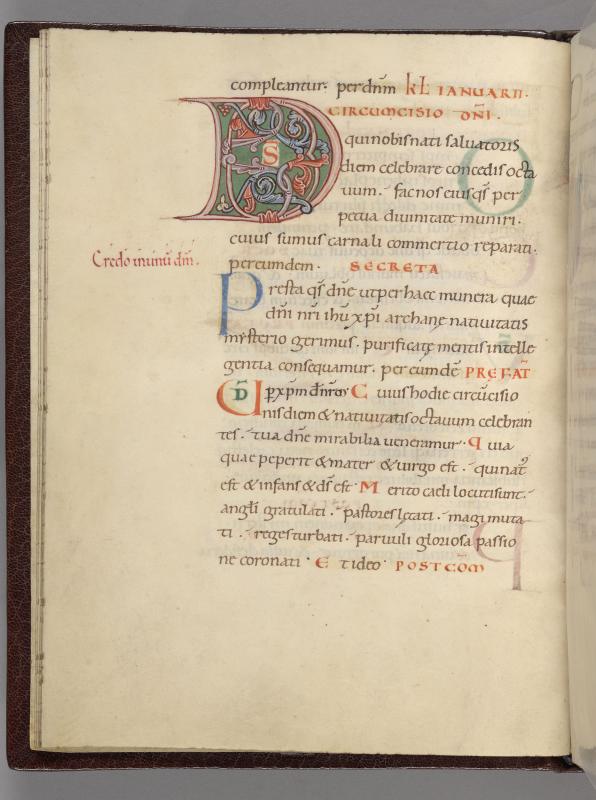 compleantur. per dnm kł IANUARII.
CIRCUMCISIO DNI.
DS qui nobis nati saluatoris
diem celebrare concedis octa
uum. fac nos eius qs per
petua diuinitate muniri.
cuius sumus carnali commertio reparati.
per eundem. SECRETA
Credo in unu dm.
Presta qs dne ut per haec munera quae
dni nri ihu xpi archanę natiuitatis
mysterio gerimus. purificatę mentis intelle
gentia consequamur. per eundē PREFAT
UD p xpm dnm Cuius hodie circūcisio
nis diem & natiuitatis octauum celebran
tes. tua dne mirabilia ueneramur. Quia
quae peperit & mater & uirgo est. qui nat
est & infans & ds est. Merito caeli locuti sunt.
angli gratulati. pastores lętati. magi muta
ti. reges turbati. paruuli gloriosa passio
ne coronati. Et ideo. POSTCOM